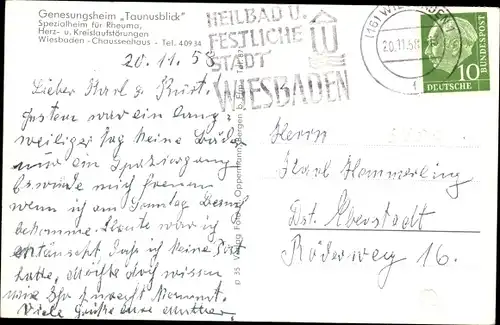 Genesungsheim „Taunusblick"
Spezialheim für Rheuma,
Herz- u. Kreislaufstörungen
Wiesbaden - Chausseehaus - Tel. 40934
HEILBAD U.
FESTLICHE
STADT
WIESBADEN
(16) WIESBADEN
20.11.58
DEUTSCHE BUNDESPOST
10
20.11.58
Lieber Karl g. Kurt.
Gestern war ein lang-
weiliger Tag keine Bäder
nur ein Spaziergang
Es würde mich freuen
wenn ich am Sonntag Besuch
bekomme. Heute war ich
enttäuscht, daß ich keine Post
hatte, Möchte doch wissen
wie Ihr zurecht kommt.
Viele Grüße eure Mutter.
Oppermann, Bergen b.
Herrn
Karl Hemmerling
Dst. Eberstadt
Röderweg 16.